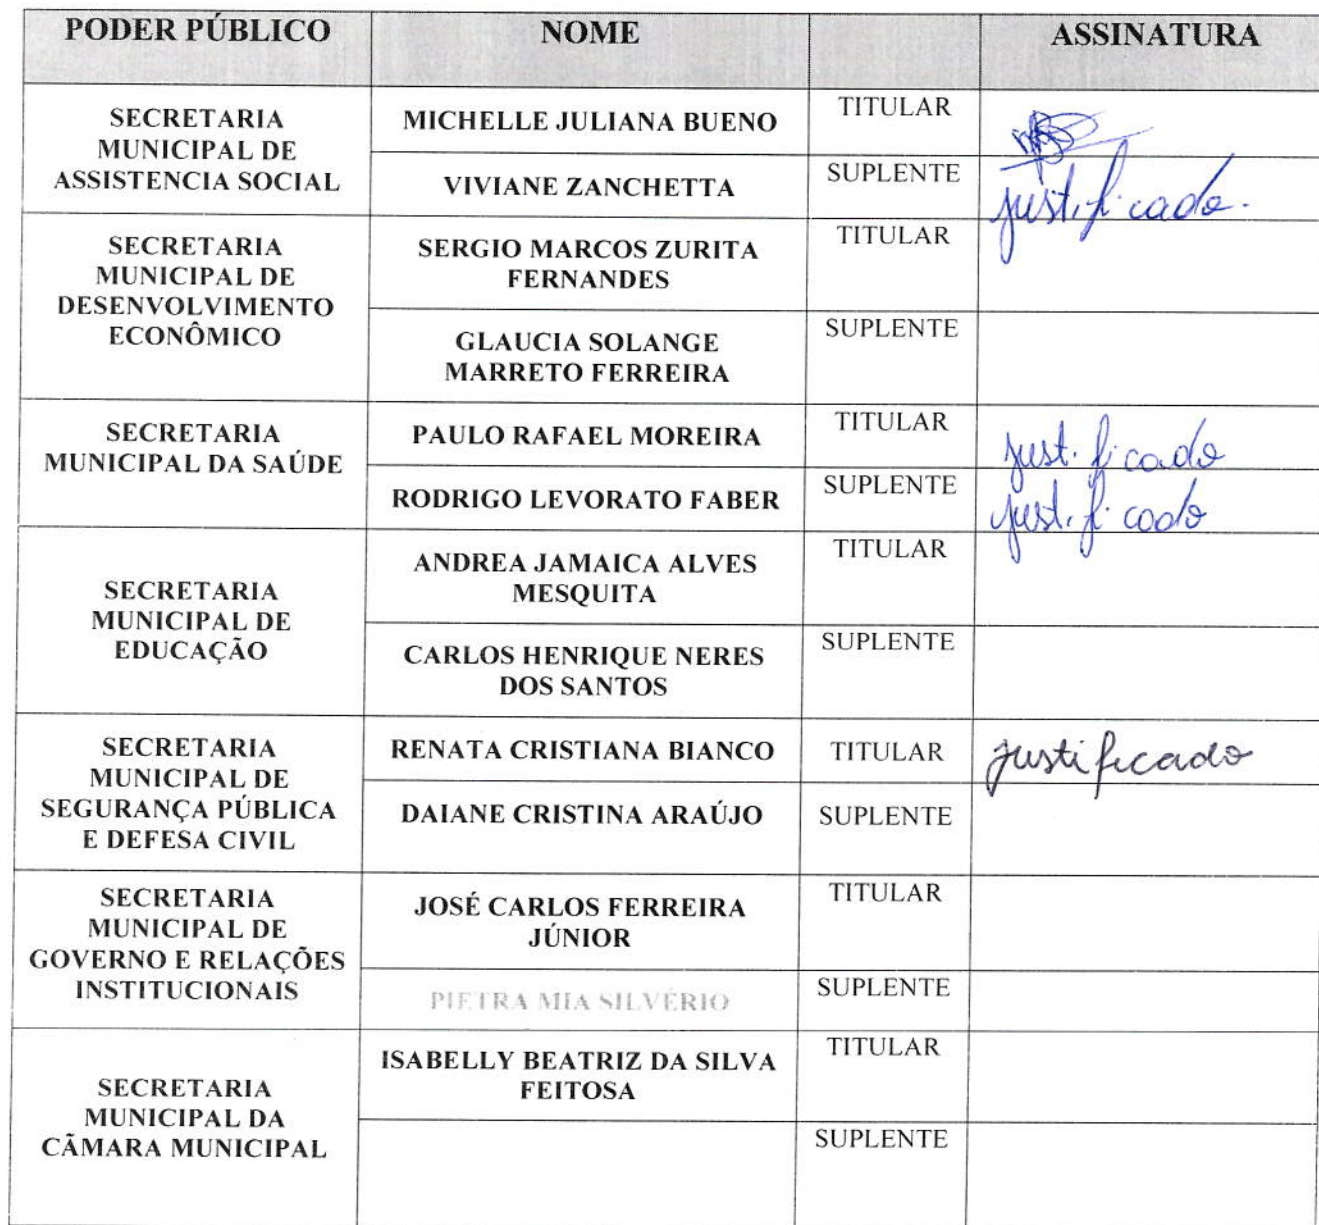 PODER PÚBLICO NOME ASSINATURA
SECRETARIA
MUNICIPAL DE
ASSISTENCIA SOCIAL
MICHELLE JULIANA BUENO
TITULAR
VIVIANE ZANCHETTA
SUPLENTE
justificado.
SECRETARIA
MUNICIPAL DE
DESENVOLVIMENTO
ECONÔMICO
SERGIO MARCOS ZURITA
FERNANDES
TITULAR
GLAUCIA SOLANGE
MARRETO FERREIRA
SUPLENTE
SECRETARIA
MUNICIPAL DA SAÚDE
PAULO RAFAEL MOREIRA
TITULAR
justificado
RODRIGO LEVORATO FABER
SUPLENTE
justificado
SECRETARIA
MUNICIPAL DE
EDUCAÇÃO
ANDREA JAMAICA ALVES
MESQUITA
TITULAR
CARLOS HENRIQUE NERES
DOS SANTOS
SUPLENTE
SECRETARIA
MUNICIPAL DE
SEGURANÇA PÚBLICA
E DEFESA CIVIL
RENATA CRISTIANA BIANCO
TITULAR
justificado
DAIANE CRISTINA ARAÚJO
SUPLENTE
SECRETARIA
MUNICIPAL DE
GOVERNO E RELAÇÕES
INSTITUCIONAIS
JOSÉ CARLOS FERREIRA
JÚNIOR
TITULAR
PIETRA MIA SILVÉRIO
SUPLENTE
SECRETARIA
MUNICIPAL DA
CÃMARA MUNICIPAL
ISABELLY BEATRIZ DA SILVA
FEITOSA
TITULAR
SUPLENTE